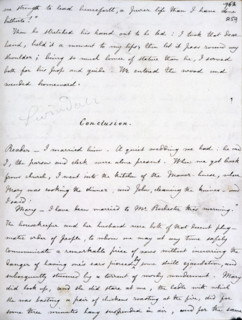 me strength to lead henceforth, a purer life than I have done
hitherto!"
Then he stretched his hand out to be led: I took that dear
hand, held it a moment to my lips, then let it pass round my
shoulder; being so much lower of stature than he, I served
both for his prop and guide. We entered the wood and
wended homeward.
Conclusion.
Reader — I married him. A quiet wedding we had: he and
I, the parson and clerk were alone present. When we got back
from church, I went into the kitchen of the Manor-house, where
Mary was cooking the dinner, and John, cleaning the knives and
I said:
"Mary — I have been married to Mr Rochester this morning."
The housekeeper and her husband were both of that decent phleg-
matic order of people, to whom one may at any time safely
communicate a remarkable piece of news without incurring the
danger of having one's ears pierced by some shrill ejaculation, and
subsequently stunned by a torrent of wordy wonderment. Mary
did look up, and she did stare at me, the ladle with which
she was basting a pair of chickens roasting at the fire, did for
some three minutes hang suspended in air, and for the same